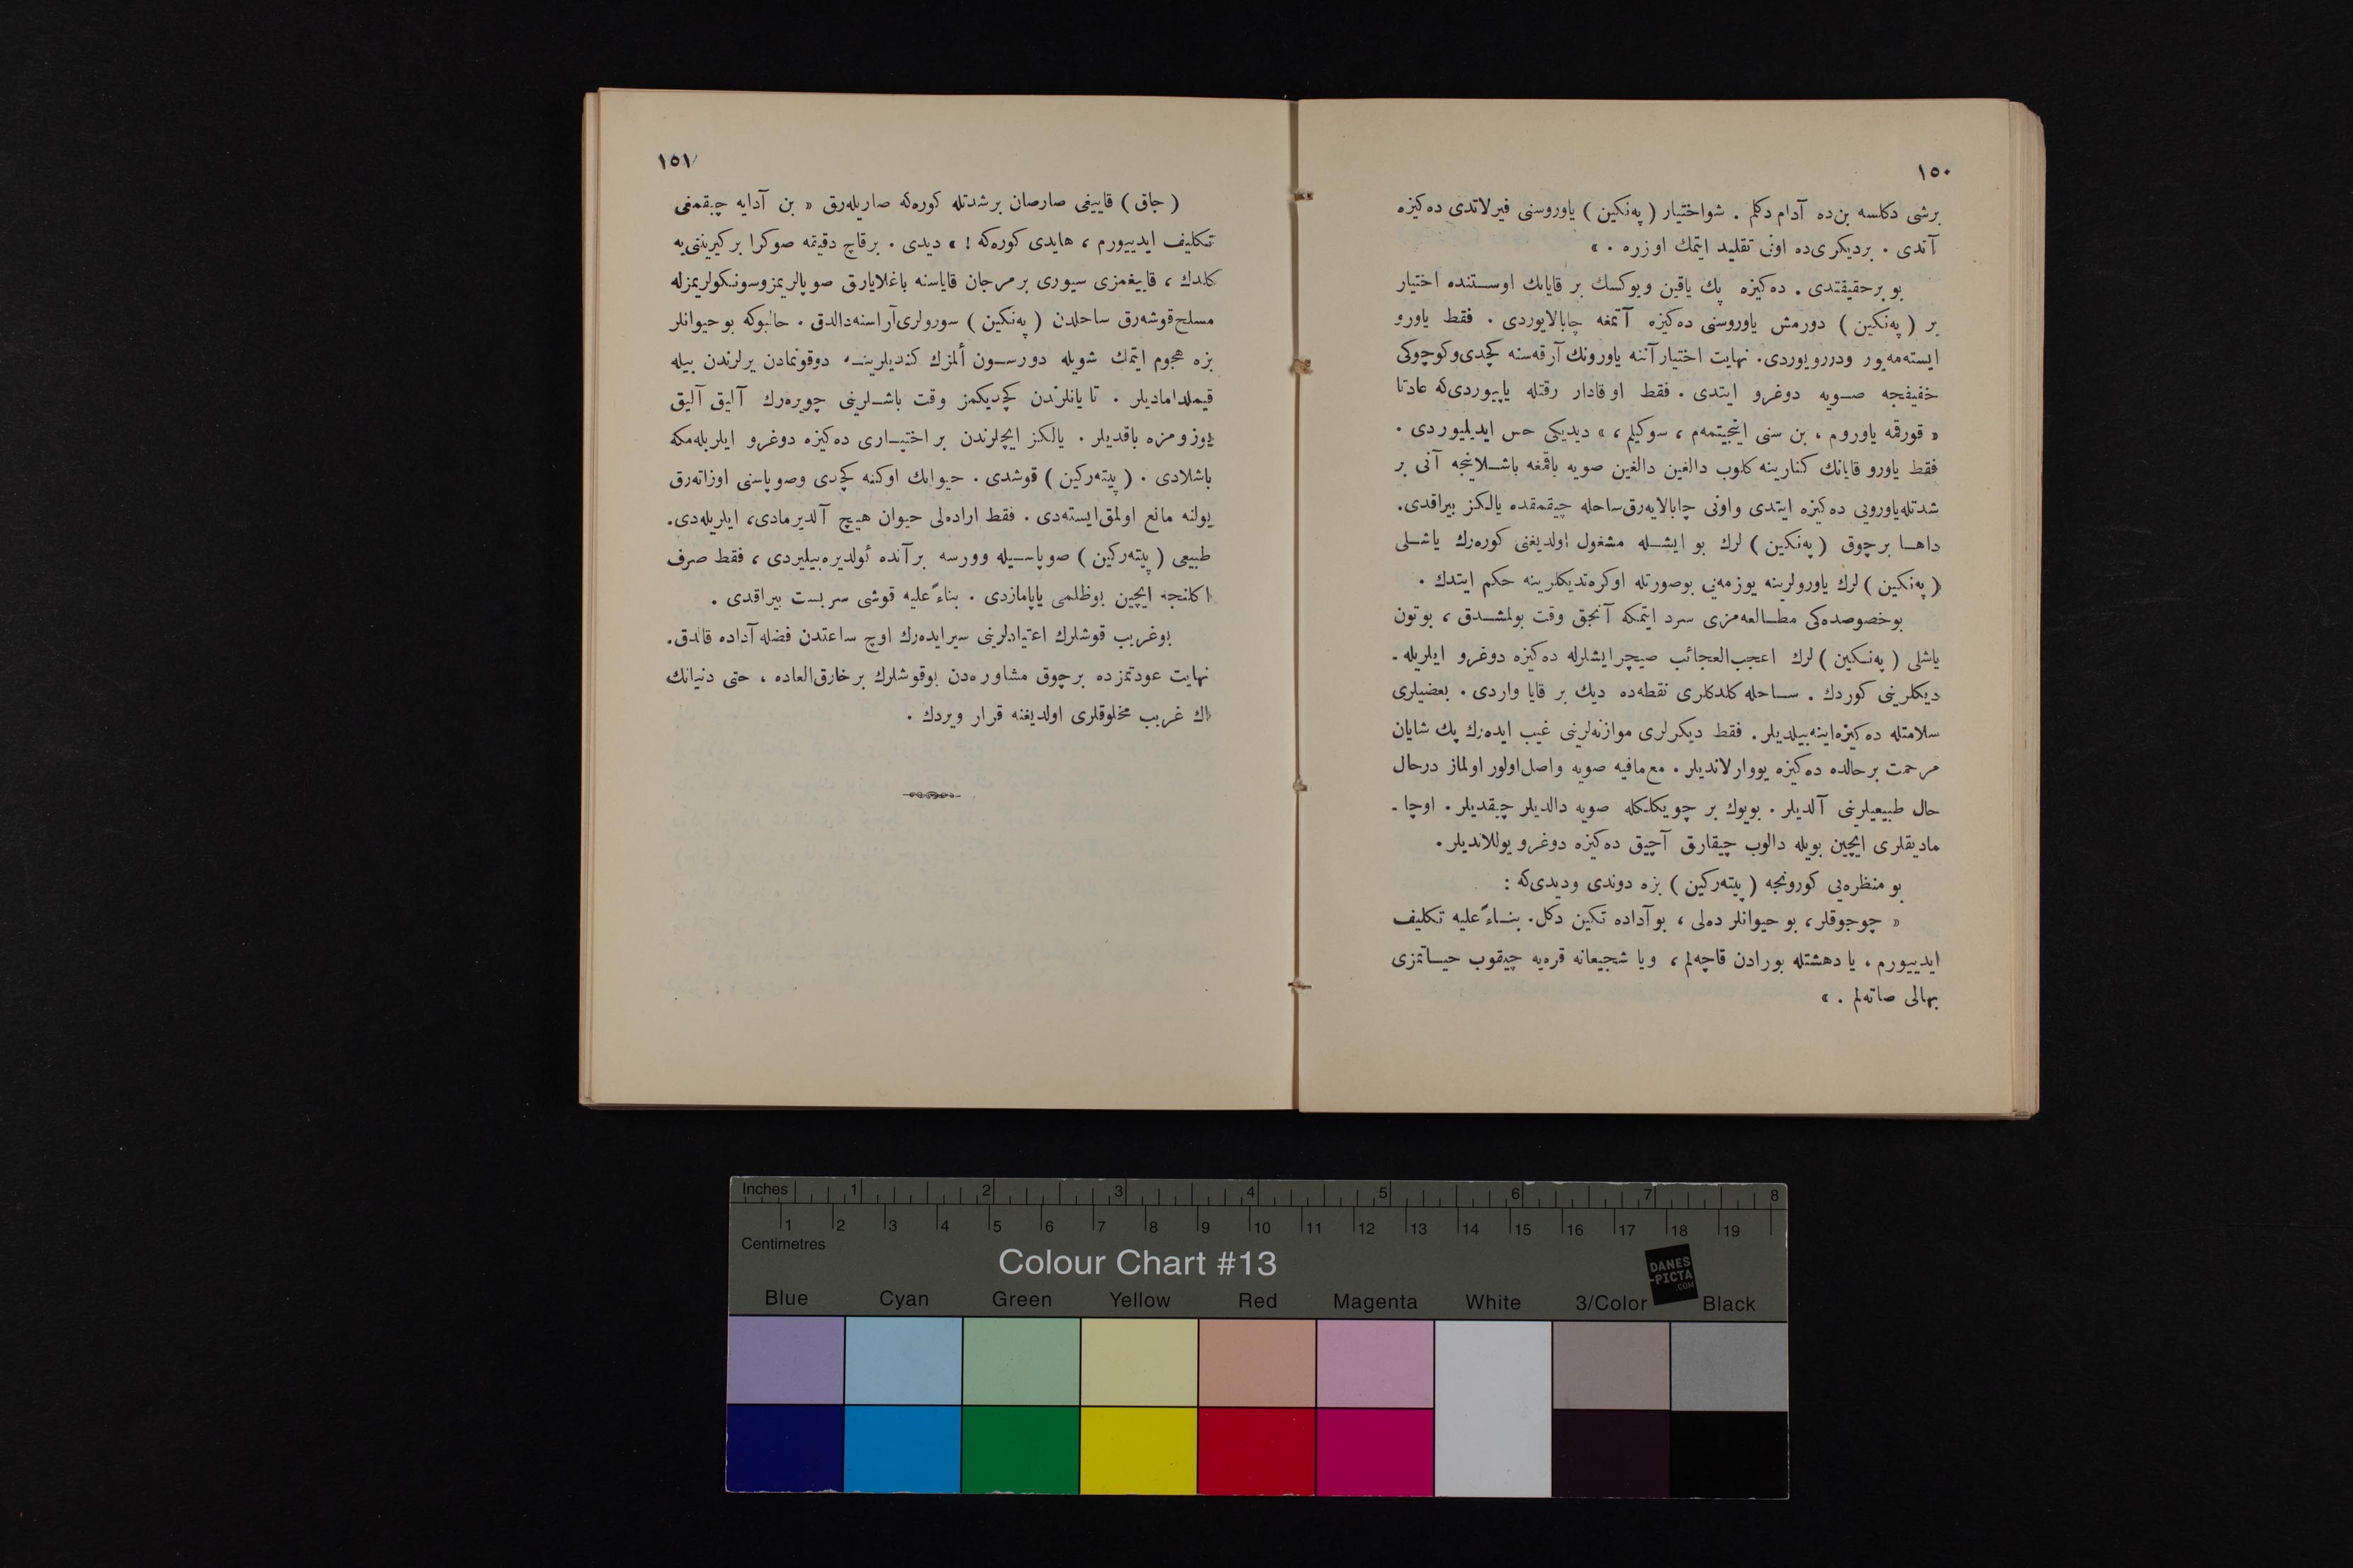 ١٥٠
برشی دكلسه بن‌ده آدام دكلم . شواختیار ( په‌نكین ) یاوروسنی فیرلاتدی ده‌كیزه
آتدی . بردیكری‌ده اونی تقلید ایتمك اوزره . »
بو برحقیقتدی . ده‌كیزه پك یاقین ویوكسك بر قایانك اوستنده اختیار
بر ( په‌نكین ) دورمش یاوروسنی ده‌كیزه آتمغه چابالایوردی . فقط یاورو
ایسته‌مه‌یور ودررویوردی. نهایت اختیار آننه یاورونك آرقه‌سنه كچدی‌وكوچوكی
خفیفجه صویه دوغرو ایتدی . فقط او قادار رقتله یاپیوردی‌كه عادتا
« قورقمه یاوروم ، بن سنی اینجیتمه‌م ، سوكیلم ، » دیدیكی حس ایدیلیوردی .
فقط یاورو قایانك كنارینه كلوب دالغین دالغین صویه باقمغه باشلاینجه آنی بر
شدتله‌یاورویی ده‌كیزه ایتدی واونی چابالایه‌رق‌ساحله چیقمقده یالكز بیراقدی.
داها برچوق ( په‌نكین ) لرك بو ایشله مشغول اولدیغنی كوره‌رك یاشلی
( په‌نكین ) لرك یاورولرینه یوزمه‌یی بوصورتله اوكره‌تدیكلرینه حكم ایتدك .
بوخصوصده‌كی مطالعه‌مزی سرد ایتمكه آنجق وقت بولمشدق ، بوتون
یاشلی ( په‌نكین ) لرك اعجب‌العجائب صیچرایشلرله ده‌كیزه دوغرو ایلریله ـ
دیكلرینی كوردك . ساحله كلدكلری نقطه‌ده دیك بر قایا واردی . بعضیلری
سلامتله ده‌كیزه‌اینه‌بیلدیلر. فقط دیكرلری موازنه‌لرینی غیب ایده‌رك پك شایان
مرحمت برحالده ده‌كیزه یووارلاندیلر . مع‌مافیه صویه واصل‌اولور اولماز درحال
حال طبیعیلرینی آلدیلر . بویوك بر چویكلكله صویه دالدیلر چیقدیلر . اوچا ـ
مادیقلری ایچین بویله دالوب چیقارق آچیق ده‌كیزه دوغرو یوللاندیلر .
بو منظره‌یی كورونجه ( پیته‌ركین ) بزه دوندی ودیدی‌كه :
« چوجوقلر، بو حیوانلر ده‌لی ، بو آداده تكین دكل. بناءً علیه تكلیف
ایدییورم ، یا دهشتله بورادن قاچه‌لم ، ویا شجیعانه قره‌یه چیقوب حیاتمزی
بهالی صاته‌لم . »
١٥١
( جاق ) قاییغی صارصان برشدتله كوره‌كه صاریله‌رق « بن آدایه چیقمغی
تكلیف ایدییورم ، هایدی كوره‌كه ! » دیدی . برقاچ دقیقه صوكرا بر كیرینتی‌یه
كلدك ، قاییغمزی سیوری بر مرجان قایاسنه باغلایارق صوپالریمزوسونكولریمزله
مسلح قوشه‌رق ساحلدن ( په‌نكین ) سورولری‌آراسنه‌دالدق . حالبوكه بو حیوانلر
بزه هجوم ایتمك شویله دورسون أللمزك كندیلرینه دوقونمادن یرلرندن بیله
قیملدامادیلر . تا یانلرندن كچدیكمز وقت باشلرینی چویره‌رك آلیق آلیق
یوزومزه باقدیلر . یالكز ایچلرندن بر اختیاری ده‌كیزه دوغرو ایلریله‌مكه
باشلادی . ( پیته‌ركین ) قوشدی . حیوانك اوكنه كچدی وصوپاسنی اوزاته‌رق
یولنه مانع اولمق‌ایسته‌دی . فقط اراده‌لی حیوان هیچ آلدیرمادی، ایلریله‌دی.
طبیعی ( پیته‌ركین ) صوپاسیله وورسه برآنده ئولدیره‌بیلیردی ، فقط صرف
اكلنجه ایچین بوظلمی یاپامازدی . بناءً علیه قوشی سربست بیراقدی .
بوغریب قوشلرك اعتیادلرینی سیرایده‌رك اوچ ساعتدن فضله آداده قالدق.
نهایت عودتمزده برچوق مشاوره‌دن بوقوشلرك برخارق‌العاده ، حتی دنیانك
اك غریب مخلوقلری اولدیغنه قرار ویردك .
Inches 1 2 3 4 5 6 7 8
1 2 3 4 5 6 7 8 9 10 11 12 13 14 15 16 17 18 19
Centimetres
Colour Chart #13
DANES
-PICTA
.COM
Blue Cyan Green Yellow Red Magenta White 3/Color Black